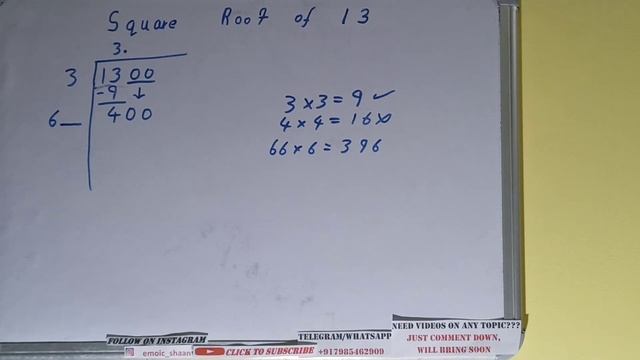 Square Root of 13
3.
3 1300
-9 ↓
6_ 400
3×3=9 ✓
4×4=16×
66×6=396
NEED VIDEOS ON ANY TOPIC???
JUST COMMENT DOWN,
WILL BRING SOON
FOLLOW ON INSTAGRAM
emoic_shaant
CLICK TO SUBSCRIBE
TELEGRAM/WHATSAPP
+917985462909